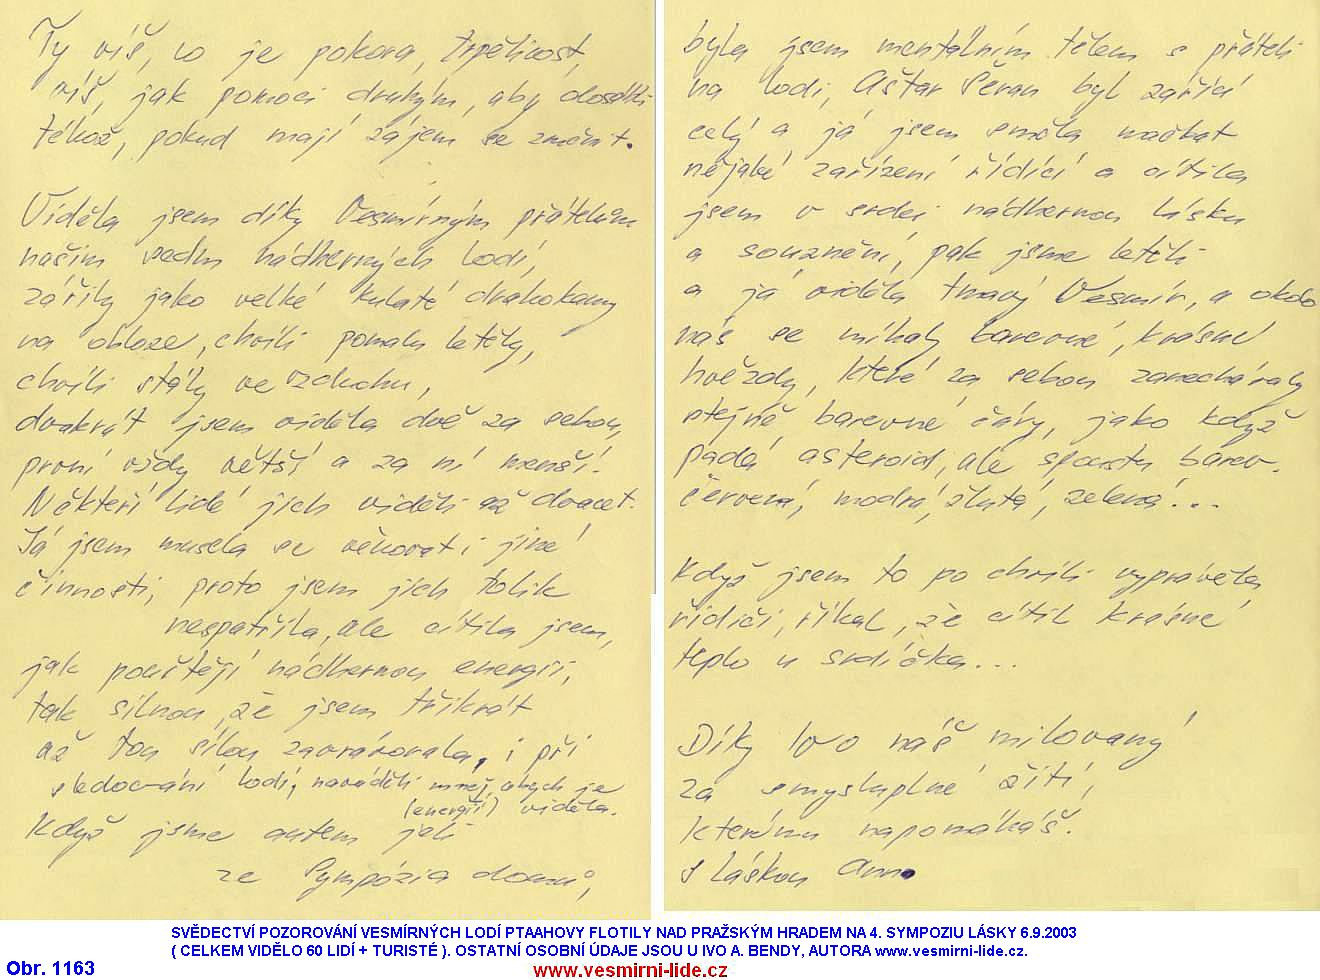 Ty víš, co je pokora, trpělivost,
víš, jak pomoci druhým, aby dosáhli
téhož, pokud mají zájem se změnit.
Viděla jsem díky Vesmírným přátelům
našim sedm nádherných lodí,
zářily jako velké kulaté drahokamy
na obloze, chvíli pomalu letěly,
chvíli stály ve vzduchu,
dvakrát jsem viděla dvě za sebou,
první vždy větší a za ní menší.
Někteří lidé jich viděli až dvacet.
Já jsem musela se věnovat i jiné
činnosti, proto jsem jich tolik
nespatřila, ale cítila jsem,
jak pouštějí nádhernou energii,
tak silnou, že jsem třikrát
až tou silou zavrávorala, i při
sledování lodí, naváděli mne, abych je
(energií) viděla.
Když jsme autem jeli
ze Sympózia domů,
byla jsem mentálním tělem s přáteli
na lodi, Aštar Šeran byl zářící
celý a já jsem směla mačkat
nějaké zařízení řídící a cítila
jsem v srdci nádhernou lásku
a souznění, pak jsme letěli
a já viděla tmavý Vesmír, a okolo
nás se míhaly barevné, krásné
hvězdy, které za sebou zanechávaly
stejně barevné čáry, jako když
padá asteroid, ale spousty barev.
červená, modrá, žlutá, zelená...
Když jsem to po chvíli vyprávěla
řidiči, říkal, že cítil krásné
teplo u srdíčka...
Díky Ivo náš milovaný
za smysluplné žití,
kterému napomáháš.
S láskou
SVĚDECTVÍ POZOROVÁNÍ VESMÍRNÝCH LODÍ PTAAHOVY FLOTILY NAD PRAŽSKÝM HRADEM NA 4. SYMPOZIU LÁSKY 6.9.2003
( CELKEM VIDĚLO 60 LIDÍ + TURISTÉ ). OSTATNÍ OSOBNÍ ÚDAJE JSOU U IVO A. BENDY, AUTORA www.vesmirni-lide.cz.
Obr. 1163
www.vesmirni-lide.cz